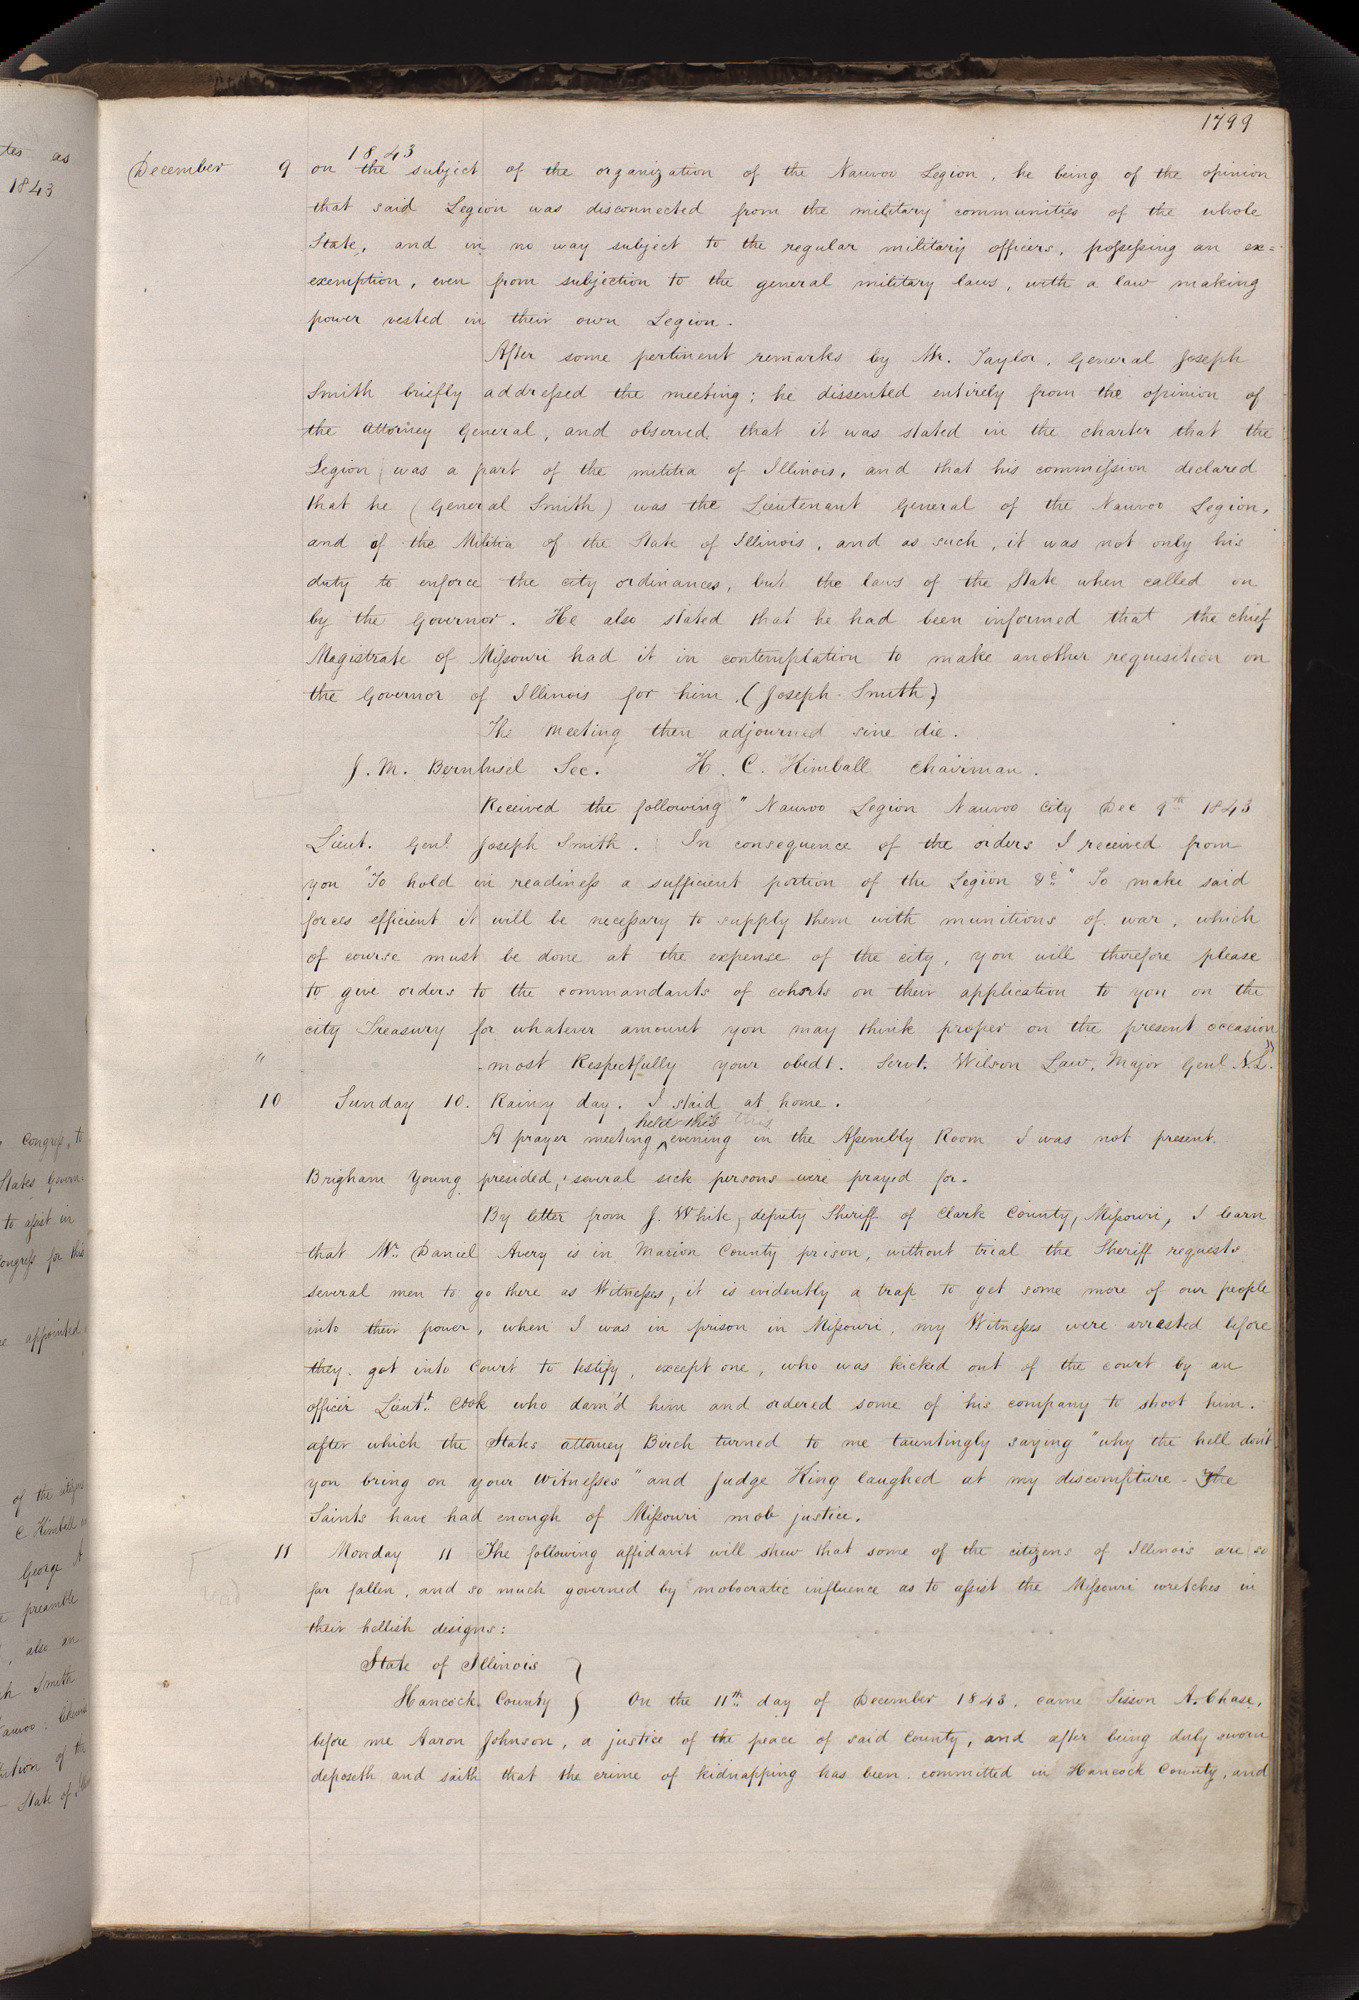 1799
1843
December 9 on the subject of the organization of the Nauvoo Legion, he being of the opinion
that said Legion was disconnected from the military communities of the whole
State, and in no way subject to the regular military officers, possessing an ex=
exemption, even from subjection to the general military laws, with a law making
power vested in their own Legion.
After some pertinent remarks by Mr. Taylor, General Joseph
Smith briefly addressed the meeting; he dissented entirely from the opinion of
the Attorney General, and observed that it was stated in the charter that the
Legion was a part of the militia of Illinois, and that his commission declared
that he (General Smith) was the Lieutenant General of the Nauvoo Legion,
and of the Militia of the State of Illinois, and as such, it was not only his
duty to enforce the city ordinances, but the laws of the State when called on
by the Governor. He also stated that he had been informed that the chief
Magistrate of Missouri had it in contemplation to make another requisition on
the Governor of Illinois for him, (Joseph Smith)
The meeting then adjourned sine die.
J. M. Bernhisel Sec. H. C. Kimball chairman.
Received the following "Nauvoo Legion Nauvoo city Dec 9th 1843
Lieut. Genl. Joseph Smith. In consequence of the orders I received from
you "To hold in readiness a sufficient portion of the Legion &c" To make said
forces efficient it will be necessary to supply them with munitions of war, which
of course must be done at the expense of the city, you will therefore please
to give orders to the commandants of cohorts on their application to you on the
city Treasury for whatever amount you may think proper on the present occasion
" most Respectfully your obedt. Servt. Wilson Law, Major Genl N.L."
10 Sunday 10. Rainy day. I staid at home.
here this
A prayer meeting ^ evening in the Assembly Room I was not present.
Brigham Young presided, several sick persons were prayed for.
By letter from J. White, deputy Sheriff of Clark County, Missouri, I learn
that Mr. Daniel Avery is in Marion County prison, without trial the Sheriff requests
several men to go there as Witnesses, it is evidently a trap to get some more of our people
into their power, when I was in prison in Missouri, my Witnesses were arrested before
they got into Court to testify, except one, who was kicked out of the court by an
officer Lieutt. Cook who dam'd him and ordered some of his company to shoot him.
after which the States attorney Birch turned to me tauntingly saying "why the hell don't
you bring on your Witnesses" and Judge King laughed at my discomfiture - The
Saints have had enough of Missouri mob justice.
11 Monday 11 The following affidavit will shew that some of the citizens of Illinois are so
far fallen, and so much governed by mobocratic influence as to assist the Missouri wretches in
their hellish designs:
State of Illinois }
Hancock County } On the 11th day of December 1843, came Sisson A. Chase,
before me Aaron Johnson, a justice of the peace of said county, and after being duly sworn
deposeth and saith that the crime of kidnapping has been committed in Hancock County, and
as
1843
Congress, to
States Govern
to assist in
Congress for this
appointed
of the citizens
C Kimball
George A
preamble
, also an
Smith
State of